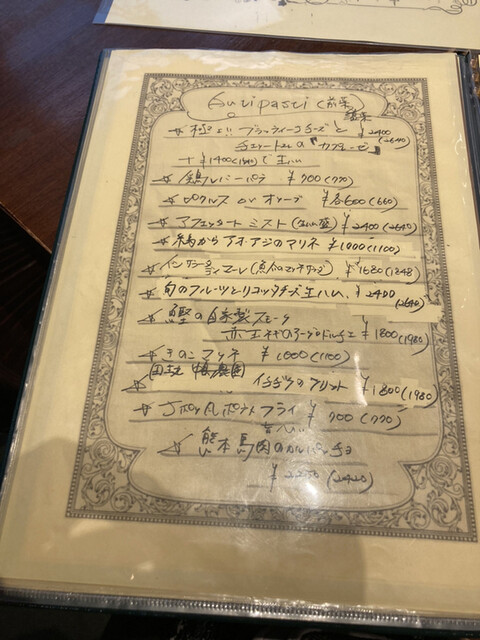 Antipasti (前菜)
極上!! ブラッティーナチーズと ¥2400 (2640)
チェリートマトの『カプレーゼ』
+ ¥1400 (1540)で生ハム
鶏レバーパテ ¥700 (770)
ピクルス or オリーブ ¥各600 (660)
アフェッタートミスト (生ハム盛) ¥2400 (2640)
¥1000 (1100)
インサラータ ディ マーレ ¥1680 (1848)
旬のフルーツとリコッタチーズ生ハム、¥2400 (2640)
鰹の自家製スモーク
赤玉ネギのアーグロドルチェ ¥1800 (1980)
きのこマリネ ¥1000 (1100)
イチヂクのフリット ¥1800 (1980)
フライ ¥700 (770)
熊本馬肉のカルパッチョ
¥2200 (2420)